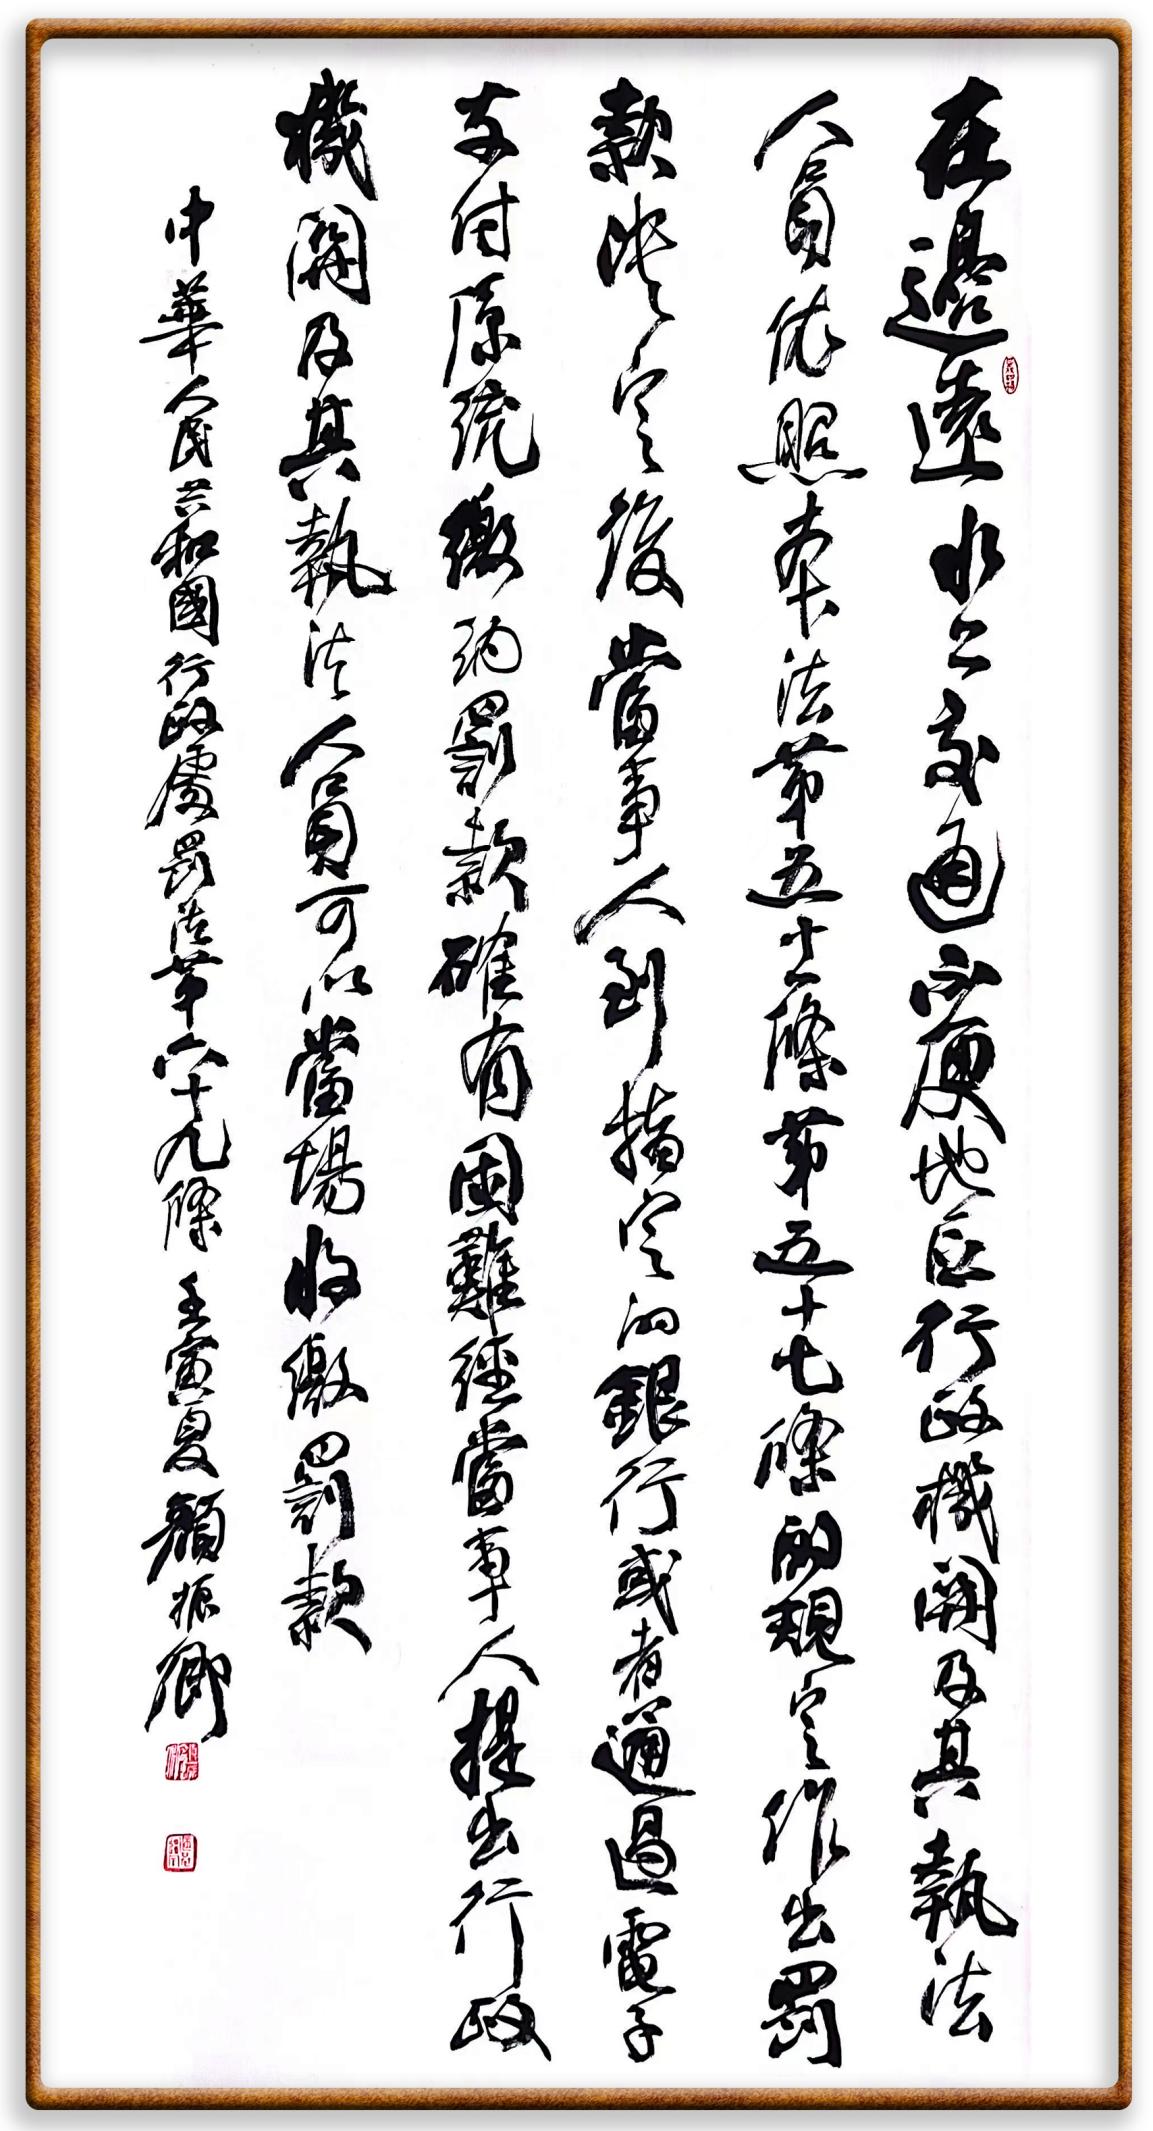 在邊遠水上交通不便地区行政機關及其執法
人員依照本法第五十一條第五十七條的規定作出罰
款决定後當事人到指定的銀行或者通過電子
支付原統繳納罰款確有困難經當事人提出行政
機關及其執法人員可以當場收繳罰款
中華人民共和國行政處罰法第六十九條 壬寅夏 顏振卿